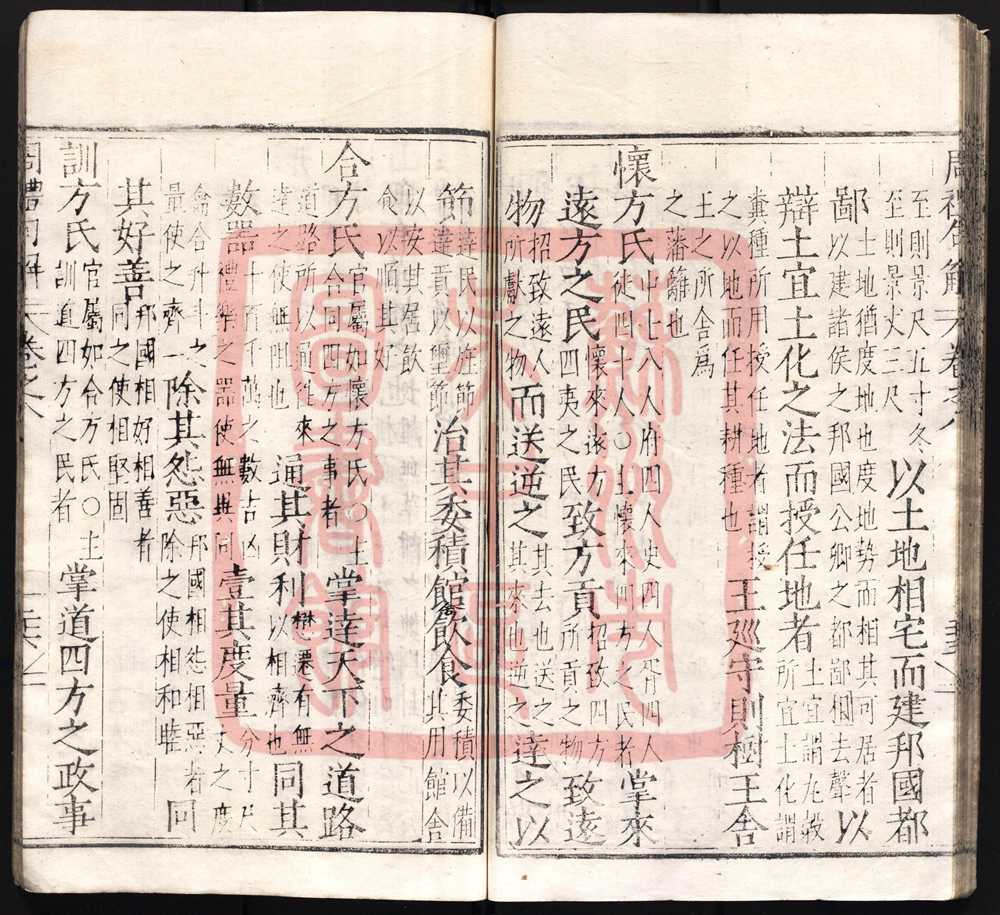 周禮句解 卷之八
至則景尺五寸冬
至則景丈三尺
以土地相宅而建邦國都
鄙
土地猶度地也度地勢而相其可居者
以建諸侯之邦國公卿之都鄙相去聲
以
辯土宜土化之法而授任地者
土宜謂九穀
所宜土化謂
糞種所用授任地者謂授
之以地而任其耕種也
王廵守則樹王舍
王之所舍爲
之藩籬也
懷方氏
中士八人府四人史四人胥四人
徒四十人○主懷來四方之民者
掌來
遠方之民
懷來遠方
四夷之民
致方貢
招致四方
所貢之物
致遠
物
招致遠人
所獻之物
而送逆之
其去也送之
其來也逆之
達之以
節
達民以旌節
達貢以璽節
治其委積館舍飲食
委積以備
其用館舍
以安其居飲
食以順其好
合方氏
官屬如懷方氏○主
合同四方之事者
掌達天下之道路
道路所以通往來
達之使無阻也
通其財利
懋遷有無
以相濟也
同其
數器
十百千萬之數吉凶
禮樂之器使無異同
壹其度量
分寸尺
丈之度
龠合升斗之
量使之齊一
除其怨惡
邦國相怨相惡者
除之使相和睦
同
其好善
邦國相好相善者
同之使相堅固
訓方氏
官屬如合方氏○主
訓道四方之民者
掌道四方之政事
周禮句解 卷之八